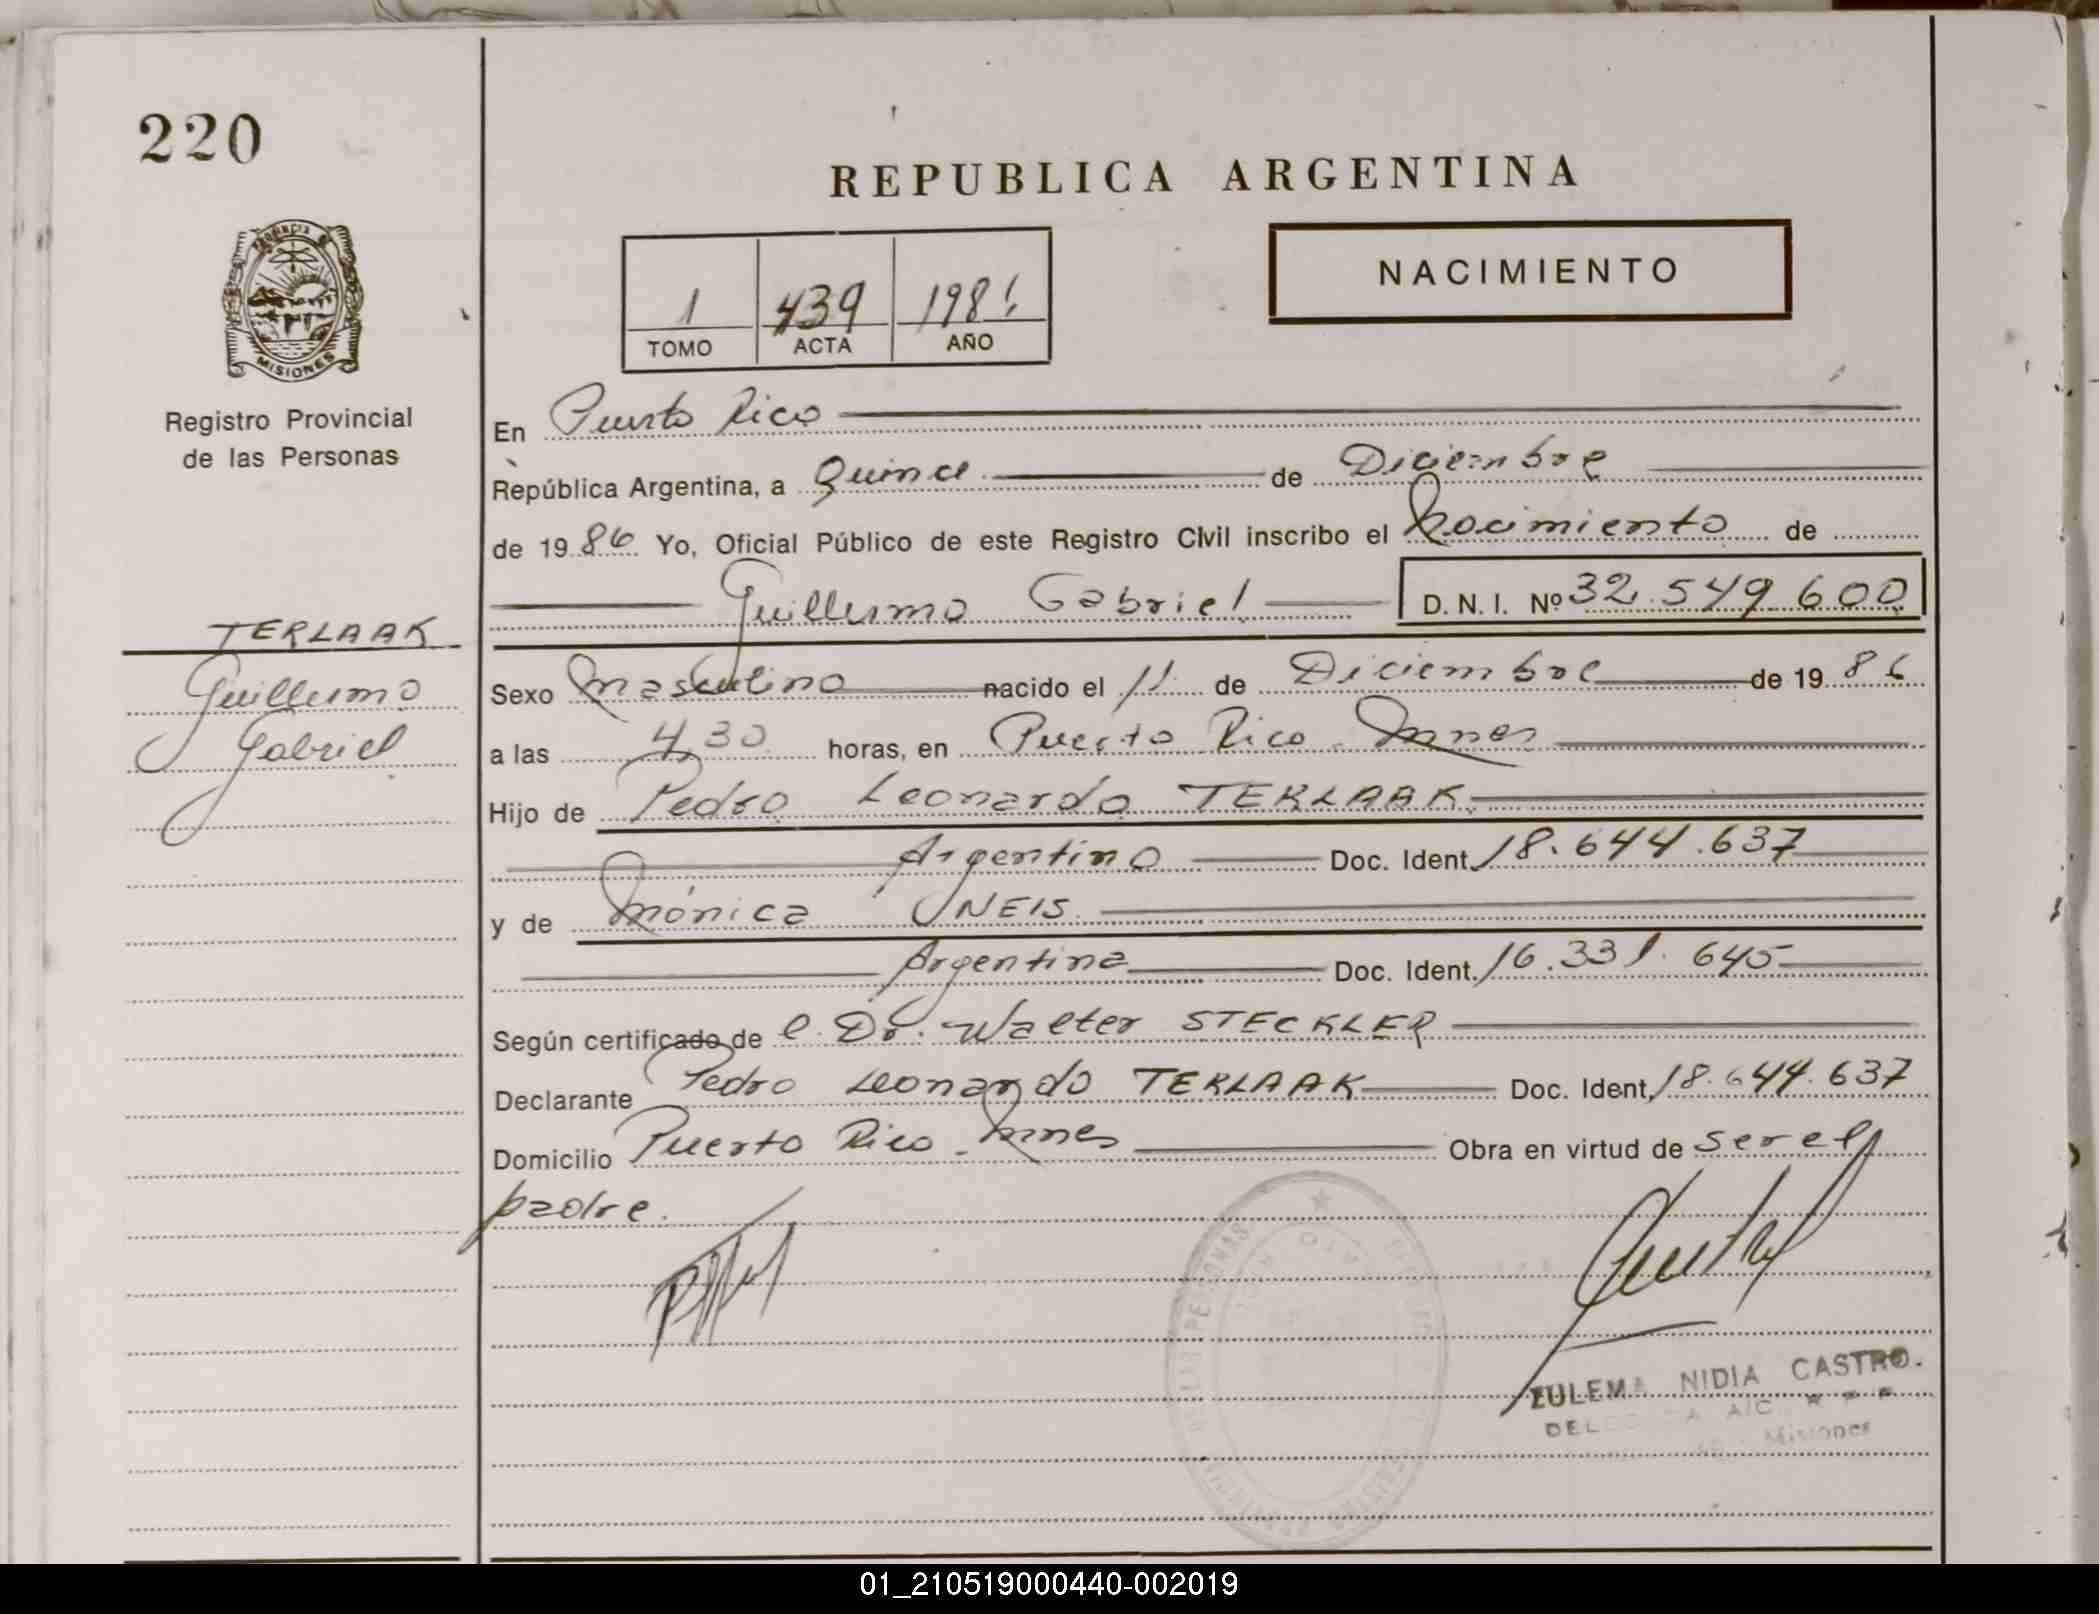 220
REPUBLICA ARGENTINA
PROVINCIA DE
MISIONES
Registro Provincial
de las Personas
1 439 198
TOMO ACTA AÑO
NACIMIENTO
En Puerto Rico
República Argentina, a Quince de Diciembre
de 1986 Yo, Oficial Público de este Registro Civil inscribo el Nacimiento de
Guillermo Gabriel D. N. I. Nº 32.549.600
TERLAAK
Guillermo
Gabriel
Sexo Masculino nacido el 11 de Diciembre de 1986
a las 4,30 horas, en Puerto Rico - Mnes
Hijo de Pedro Leonardo TERLAAK
Argentino Doc. Ident. 18.644.637
y de Mónica NEIS
Argentina Doc. Ident. 16.331.645
Según certificado de l Dr. Walter STECKLER
Declarante Pedro Leonardo TERLAAK Doc. Ident. 18.644.637
Domicilio Puerto Rico - Mnes Obra en virtud de ser el
padre.
DE LAS PERSONAS
ZULEMA NIDIA CASTRO.
Misiones
01_210519000440-002019